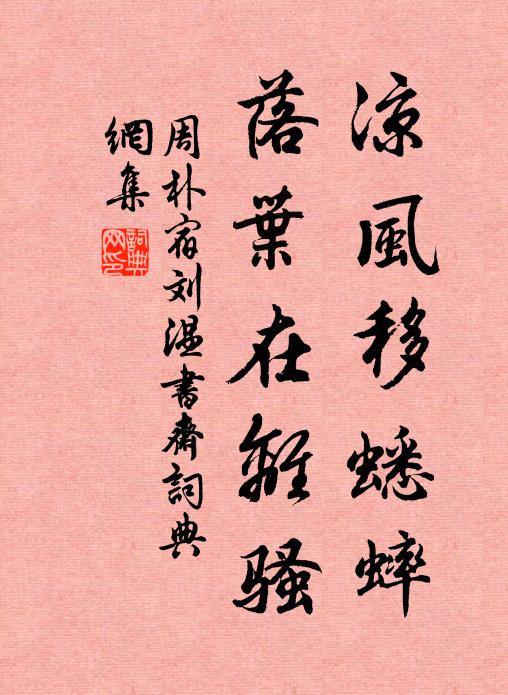 凉風移蟋蟀
落葉在離騷
周朴宿刘温書齋詞典
網集
詞典網印